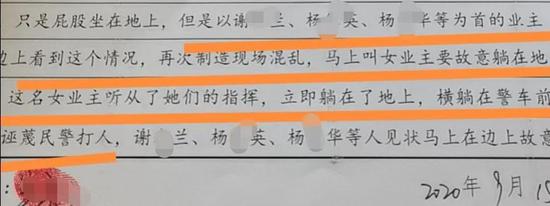 只是屁股坐在地上，但是以谢 兰、杨 英、杨 华等为首的业主
边上看到这个情况，再次制造现场混乱，马上叫女业主要故意躺在地
这名女业主听从了她们的指挥，立即躺在了地上，横躺在警车前
诬蔑民警打人，谢 兰、杨 英、杨 华等人见状马上在边上故意
: 2020年 月 15